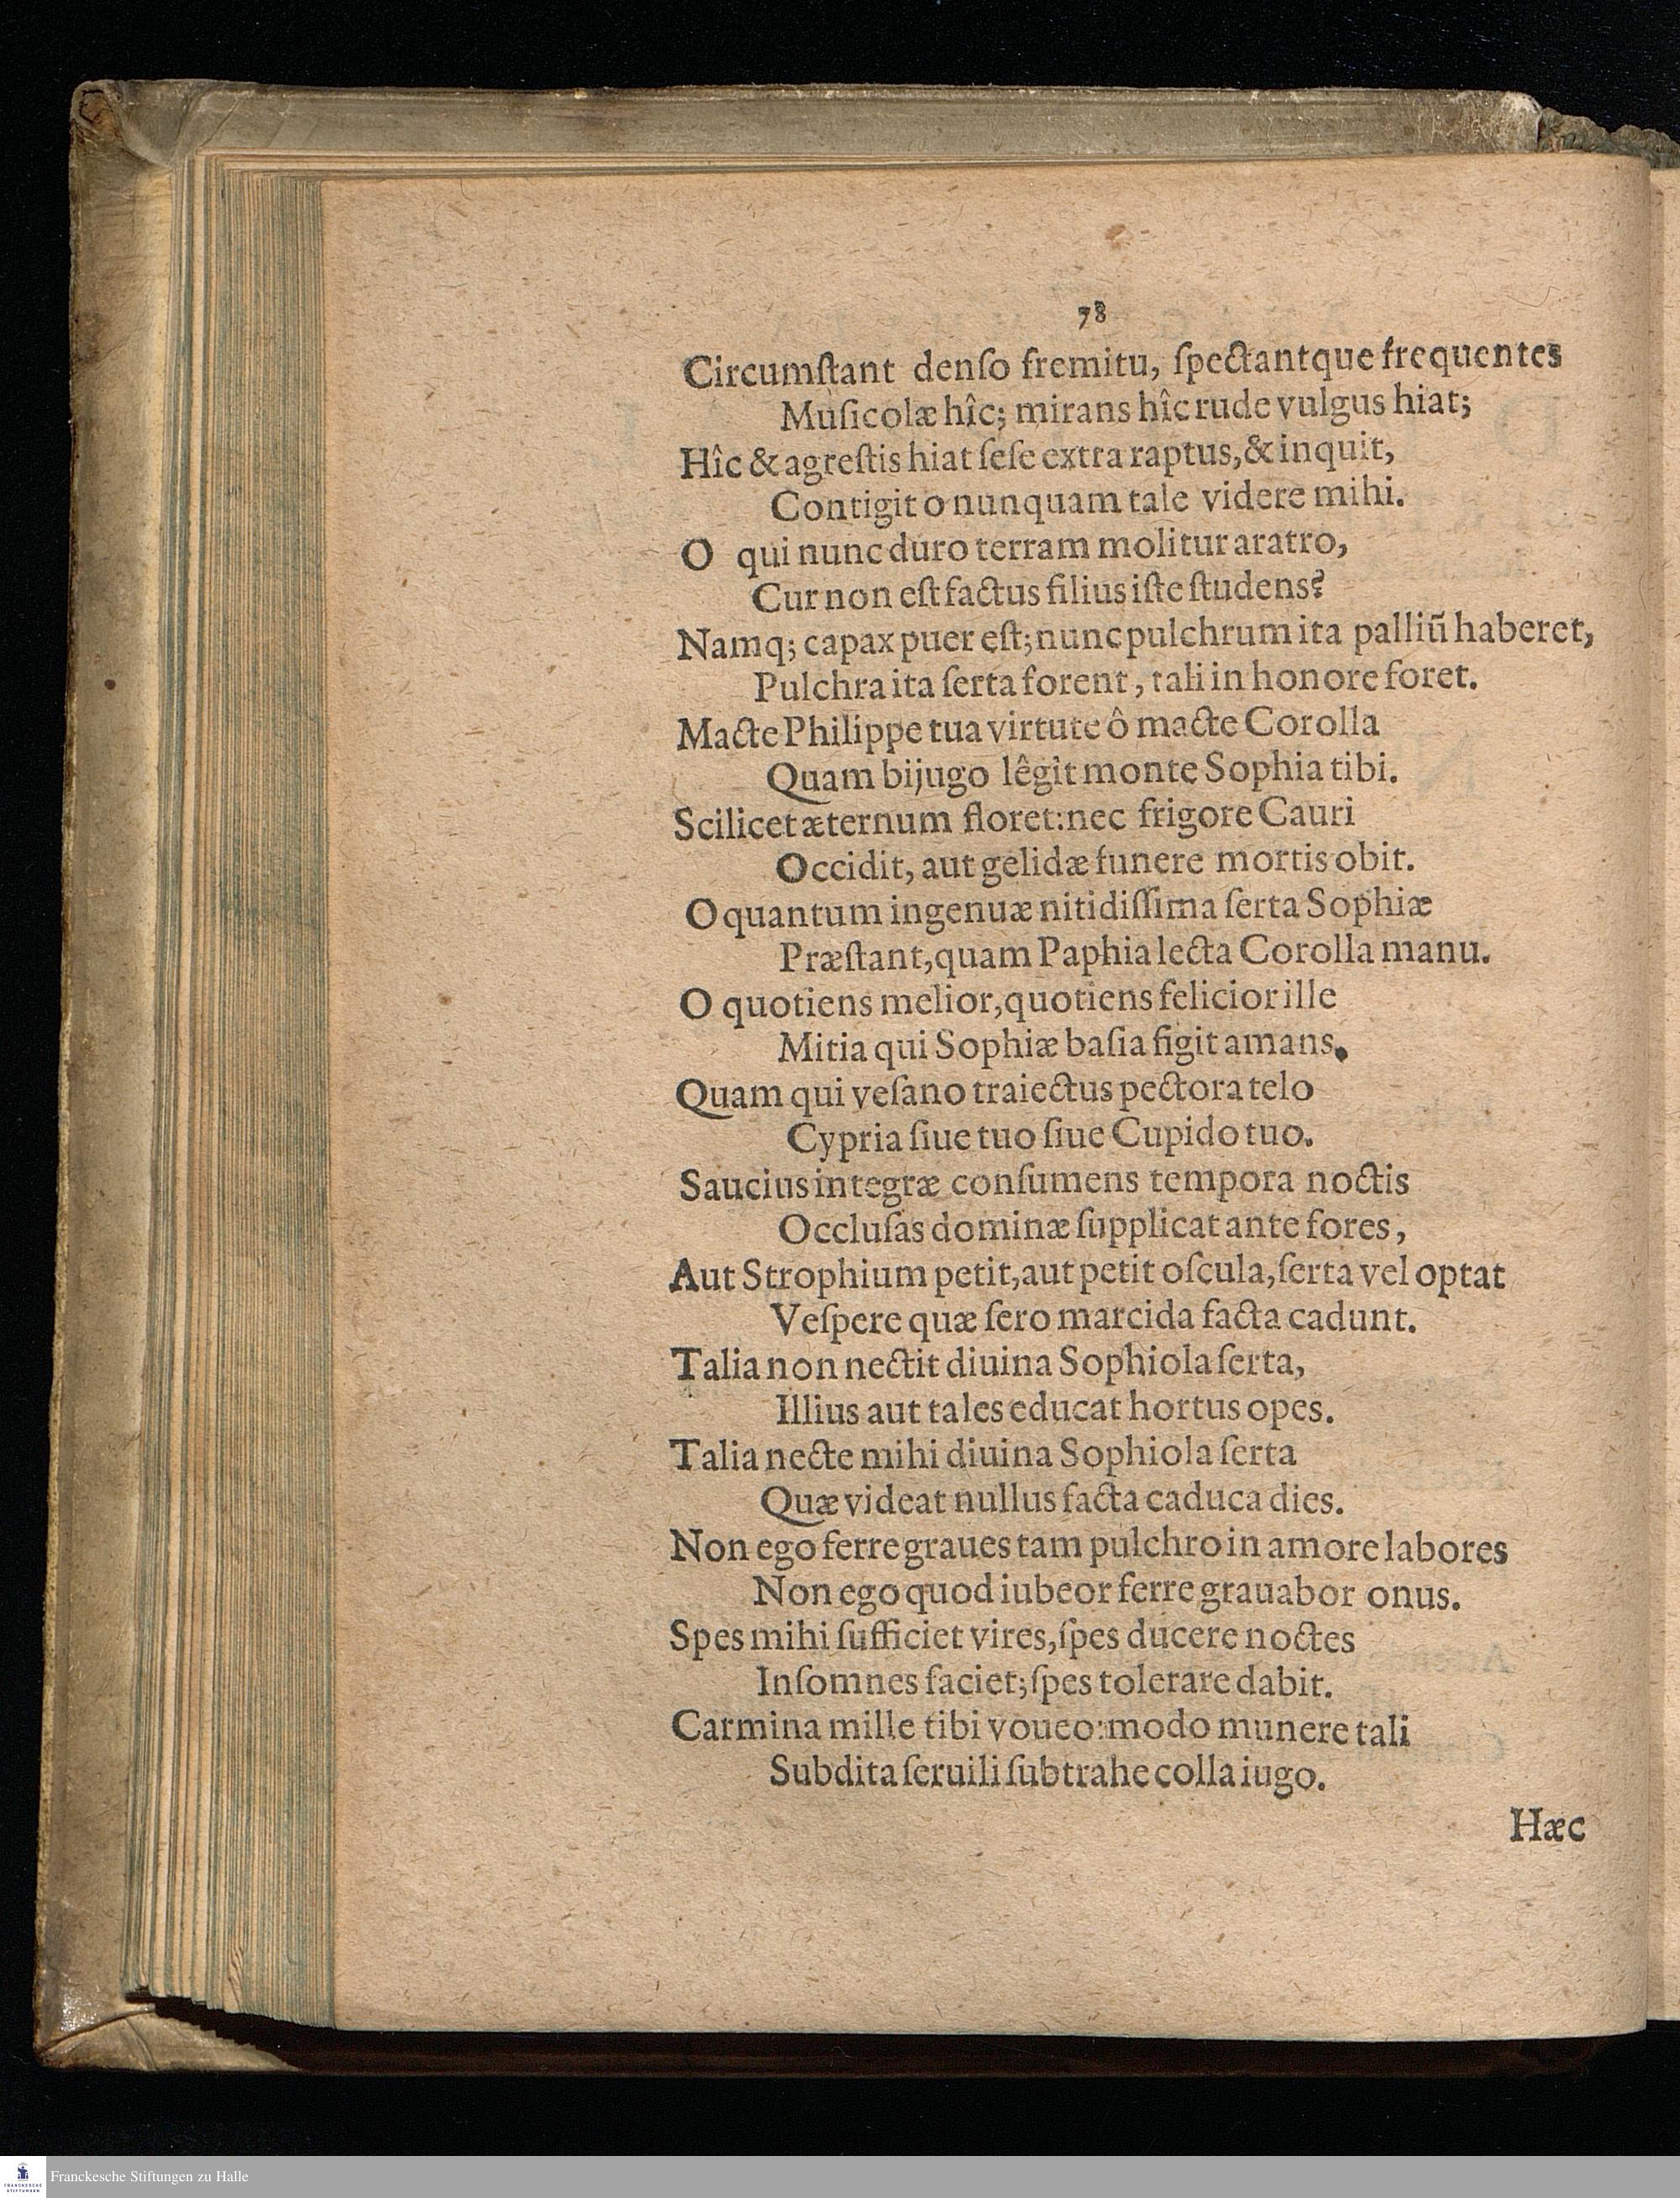 78
Circumſtant denſo fremitu, ſpectantque frequentes
Muſicolæ hîc; mirans hîc rude vulgus hiat;
Hîc & agreſtis hiat ſeſe extra raptus, & inquit,
Contigit o nunquam tale videre mihi.
O qui nunc duro terram molitur aratro,
Cur non eſt factus filius iſte ſtudens?
Namq; capax puer eſt; nunc pulchrum ita palliũ haberet,
Pulchra ita ſerta forent, tali in honore foret.
Macte Philippe tua virtute ô macte Corolla
Quam bijugo lêgit monte Sophia tibi.
Scilicet æternum floret: nec frigore Cauri
Occidit, aut gelidæ funere mortis obit.
O quantum ingenuæ nitidiſſima ſerta Sophiæ
Præſtant, quam Paphia lecta Corolla manu.
O quotiens melior, quotiens felicior ille
Mitia qui Sophiæ baſia figit amans.
Quam qui veſano traiectus pectora telo
Cypria ſiue tuo ſiue Cupido tuo.
Saucius integræ conſumens tempora noctis
Occluſas dominæ ſupplicat ante fores,
Aut Strophium petit, aut petit oſcula, ſerta vel optat
Veſpere quæ ſero marcida facta cadunt.
Talia non nectit diuina Sophiola ſerta,
Illius aut tales educat hortus opes.
Talia necte mihi diuina Sophiola ſerta
Quæ videat nullus facta caduca dies.
Non ego ferre graues tam pulchro in amore labores
Non ego quod iubeor ferre grauabor onus.
Spes mihi ſufficiet vires, ſpes ducere noctes
Inſomnes faciet; ſpes tolerare dabit.
Carmina mille tibi voueo: modo munere tali
Subdita ſeruili ſubtrahe colla iugo.
Hæc
Franckesche Stiftungen zu Halle